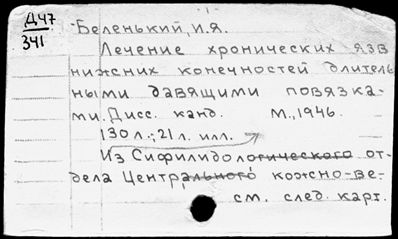 Д47
341
Беленький, И.Я.
Лечение хронических язв
нижних конечностей длитель
ными давящими повязка-
ми. Дисс. канд. М., 1946.
130 л.; 21 л. илл.
Из Сифилидологического от-
дела Центрального кожно-ве-
см. след. карт.